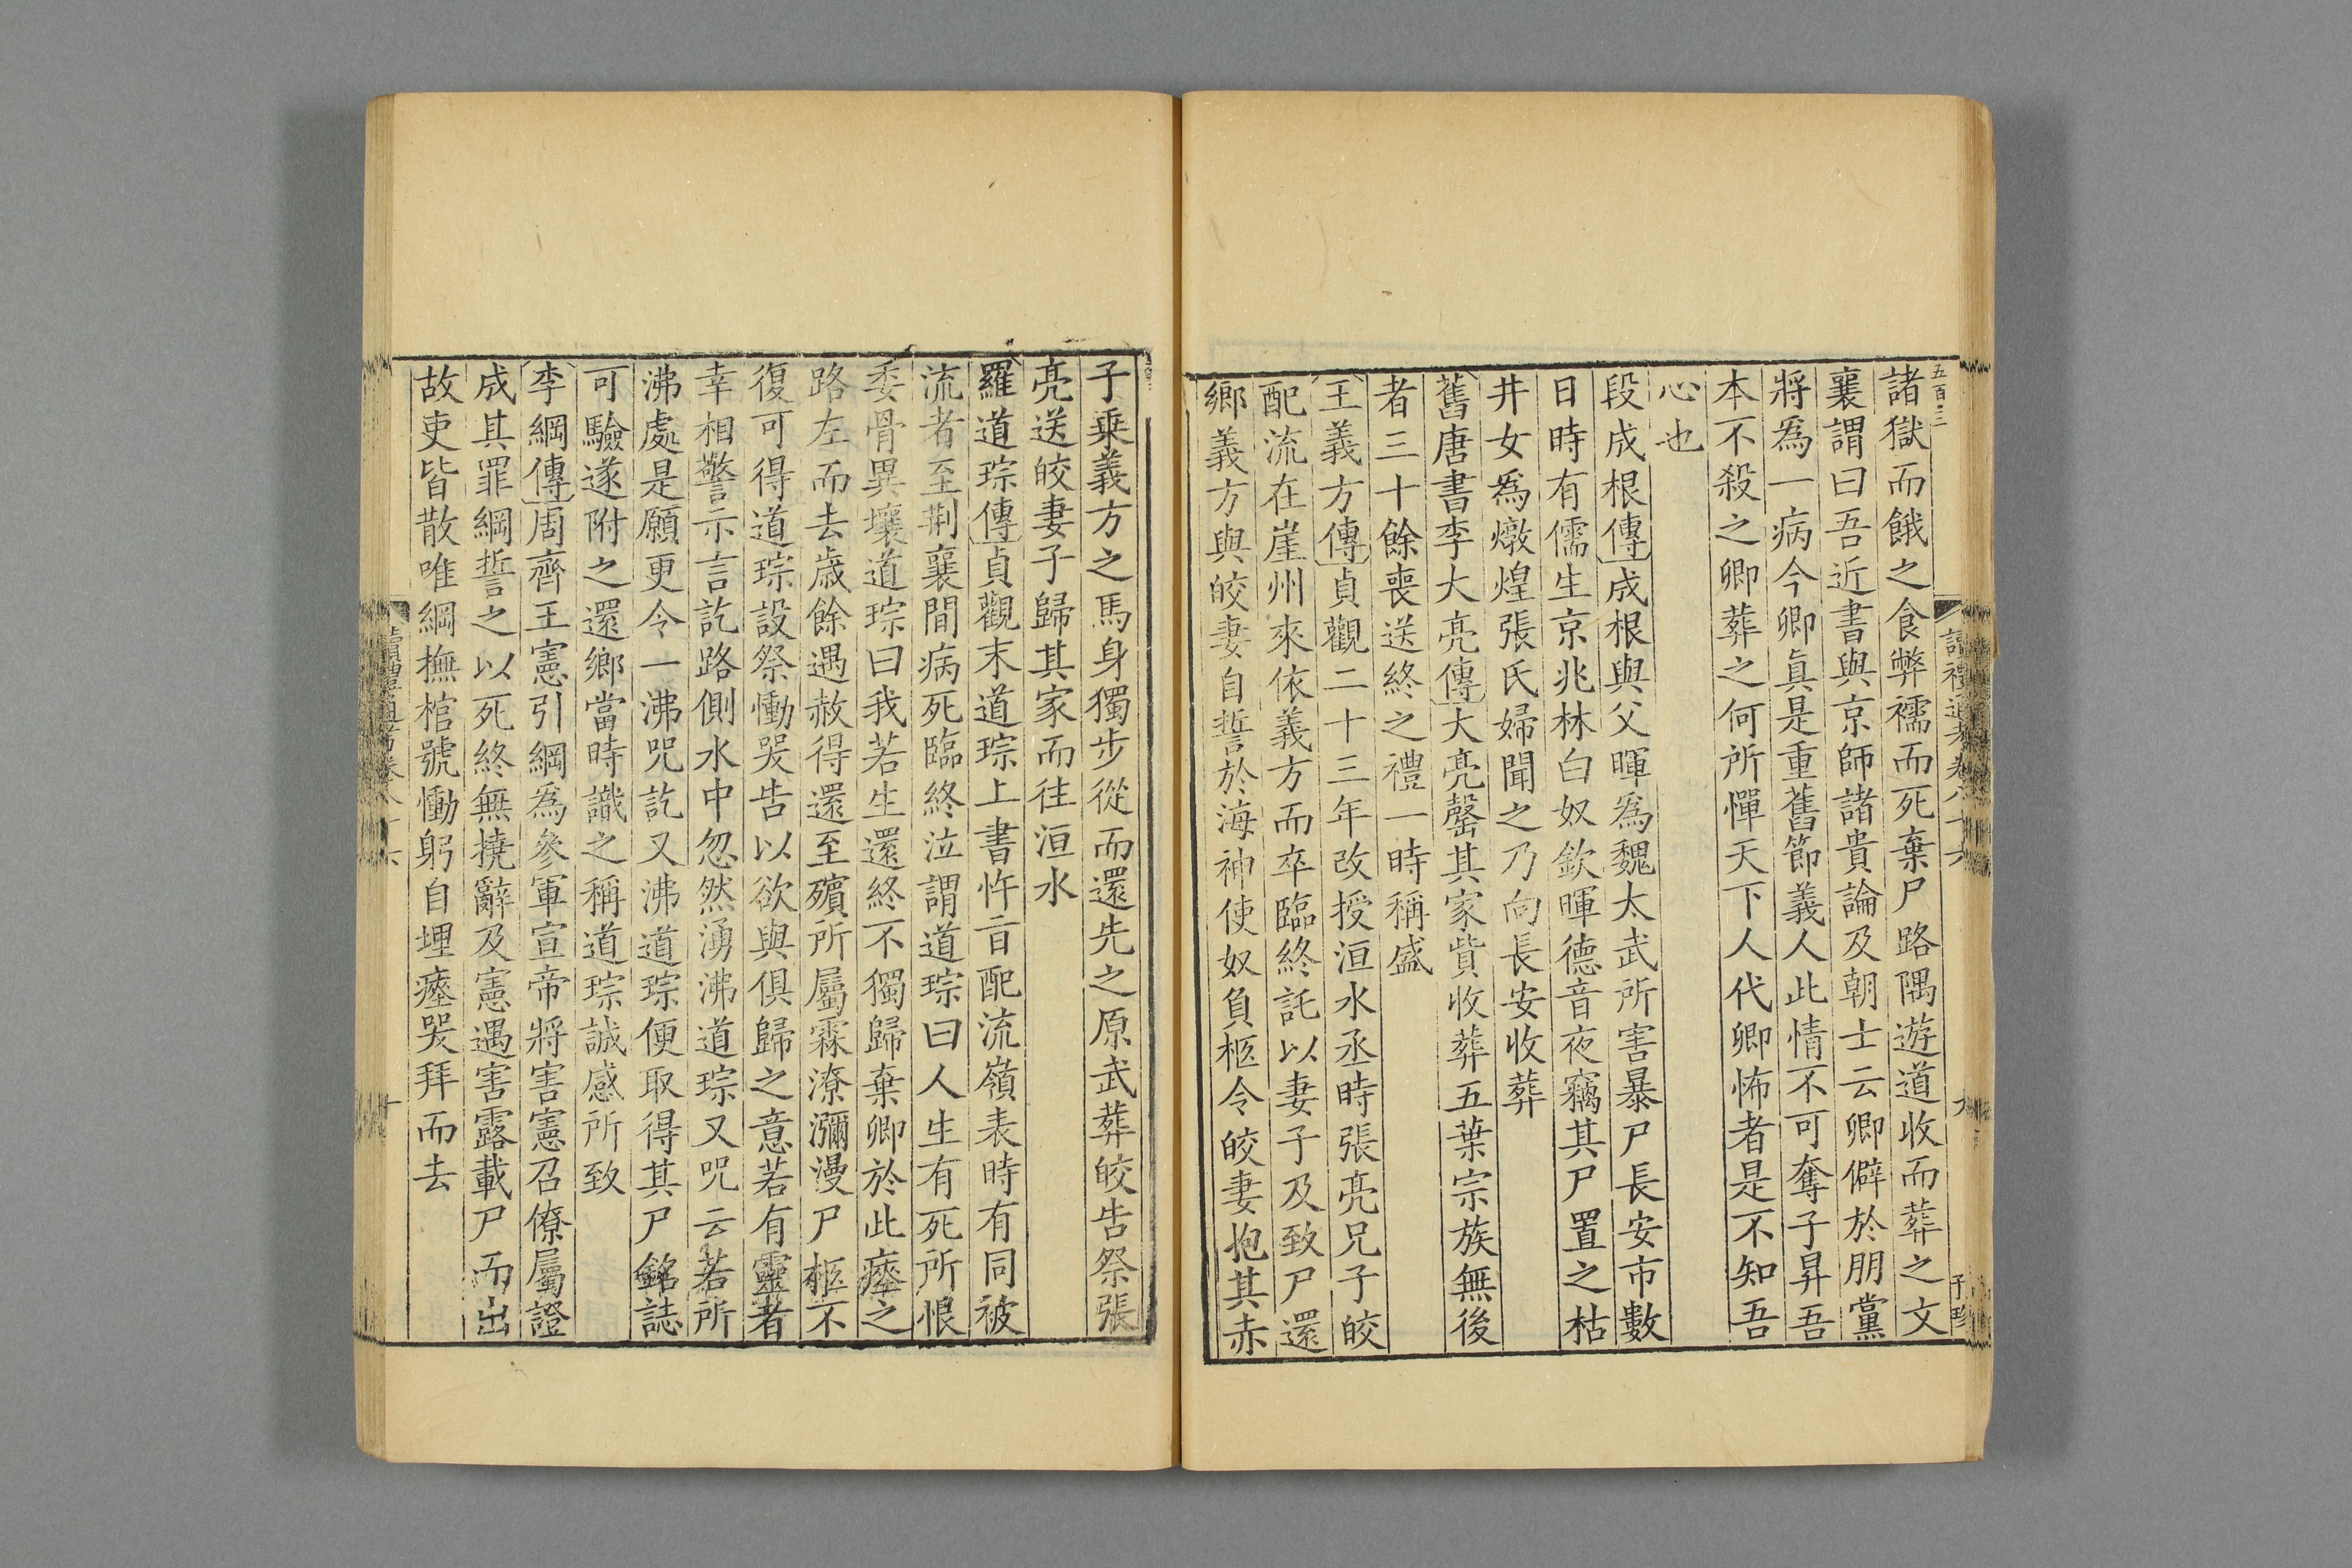 五百三
諸獄而餓之食弊襦而死棄尸路隅遊道收而葬之文
襄謂曰吾近書與京師諸貴論及朝士云卿僻於朋黨
將爲一病今卿眞是重舊節義人此情不可奪子昇吾
本不殺之卿葬之何所憚天下人代卿怖者是不知吾
心也
段成根傳成根與父暉爲魏太武所害暴尸長安市數
日時有儒生京兆林白奴欽暉德音夜竊其尸置之枯
井女爲燉煌張氏婦聞之乃向長安收葬
舊唐書李大亮傳大亮罄其家貲收葬五葉宗族無後
者三十餘喪送終之禮一時稱盛
王義方傳貞觀二十三年改授洹水丞時張亮兄子皎
配流在崖州來依義方而卒臨終託以妻子及致尸還
鄉義方與皎妻自誓於海神使奴負柩令皎妻抱其赤
子乗義方之馬身獨步從而還先之原武葬皎告祭張
亮送皎妻子歸其家而往洹水
羅道琮傳貞觀末道琮上書忤旨配流嶺表時有同被
流者至荆襄間病死臨終泣謂道琮曰人生有死所恨
委骨異壤道琮曰我若生還終不獨歸棄卿於此瘞之
路左而去歳餘遇赦得還至殯所屬霖潦瀰漫尸柩不
復可得道琮設祭慟哭告以欲與俱歸之意若有靈者
幸相警示言訖路側水中忽然湧沸道琮又咒云若所
沸處是願更令一沸咒訖又沸道琮便取得其尸銘誌
可驗遂附之還鄉當時識之稱道琮誠感所致
李綱傳周齊王憲引綱爲參軍宣帝將害憲召僚屬證
成其罪綱誓之以死終無撓辭及憲遇害露載尸而出
故吏皆散唯綱撫棺號慟躬自埋瘞哭拜而去